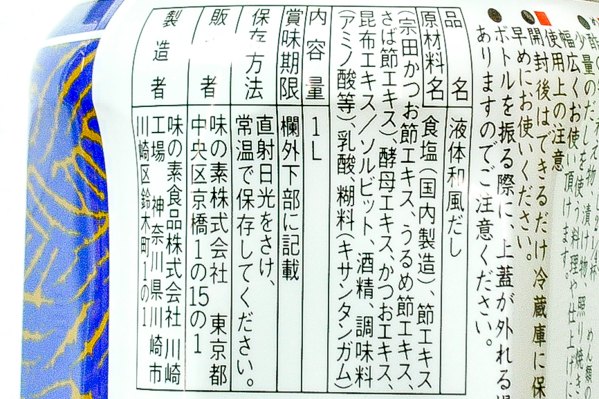 少量のだしを使う料理や仕上げに
幅広くお使い頂けます。
使用上の注意
開封後はできるだけ冷蔵庫に保
早めにお使いください。
ボトルを振る際に上蓋が外れる
ありますのでご注意ください。
品名 液体和風だし
原材料名 食塩(国内製造)、節エキス
(宗田かつお節エキス、うるめ節エキス、
さば節エキス)、酵母エキス、かつおエキス、
昆布エキス/ソルビット、酒精、調味料
(アミノ酸等)、乳酸、糊料(キサンタンガム)
内容量 1L
賞味期限 欄外下部に記載
保存方法 直射日光をさけ、
常温で保存してください。
販売者 味の素株式会社 東京都
中央区京橋1の15の1
製造者 味の素食品株式会社 川崎
工場 神奈川県川崎市
川崎区鈴木町1の1